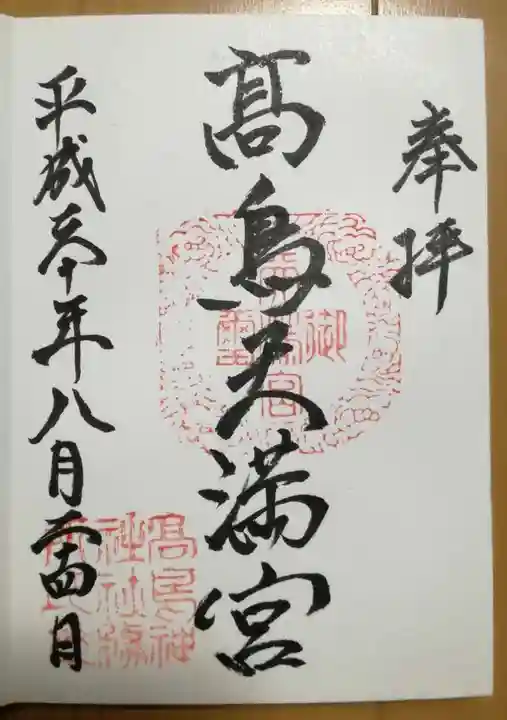 奉拝
髙鳥天満宮
平成三十年八月二十四日
御
髙鳥神
社社務